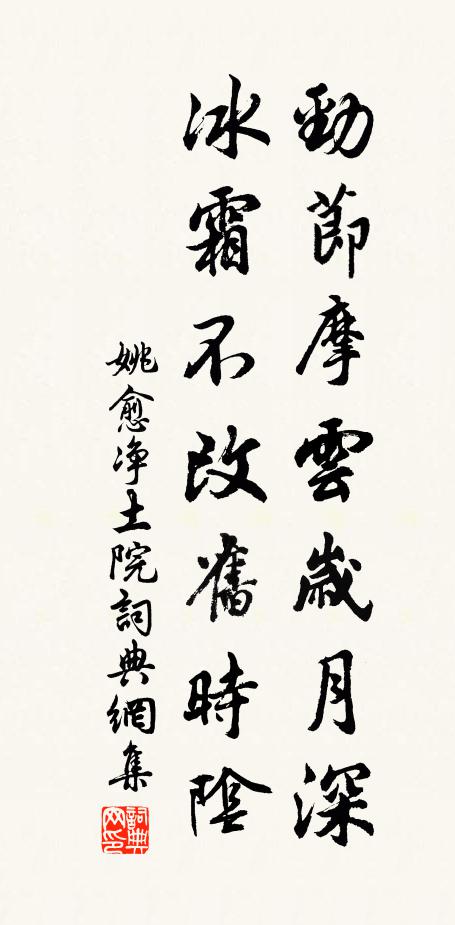 勁節摩雲歲月深
冰霜不改舊時陰
姚愈淨土院詞典網集
詞典網印